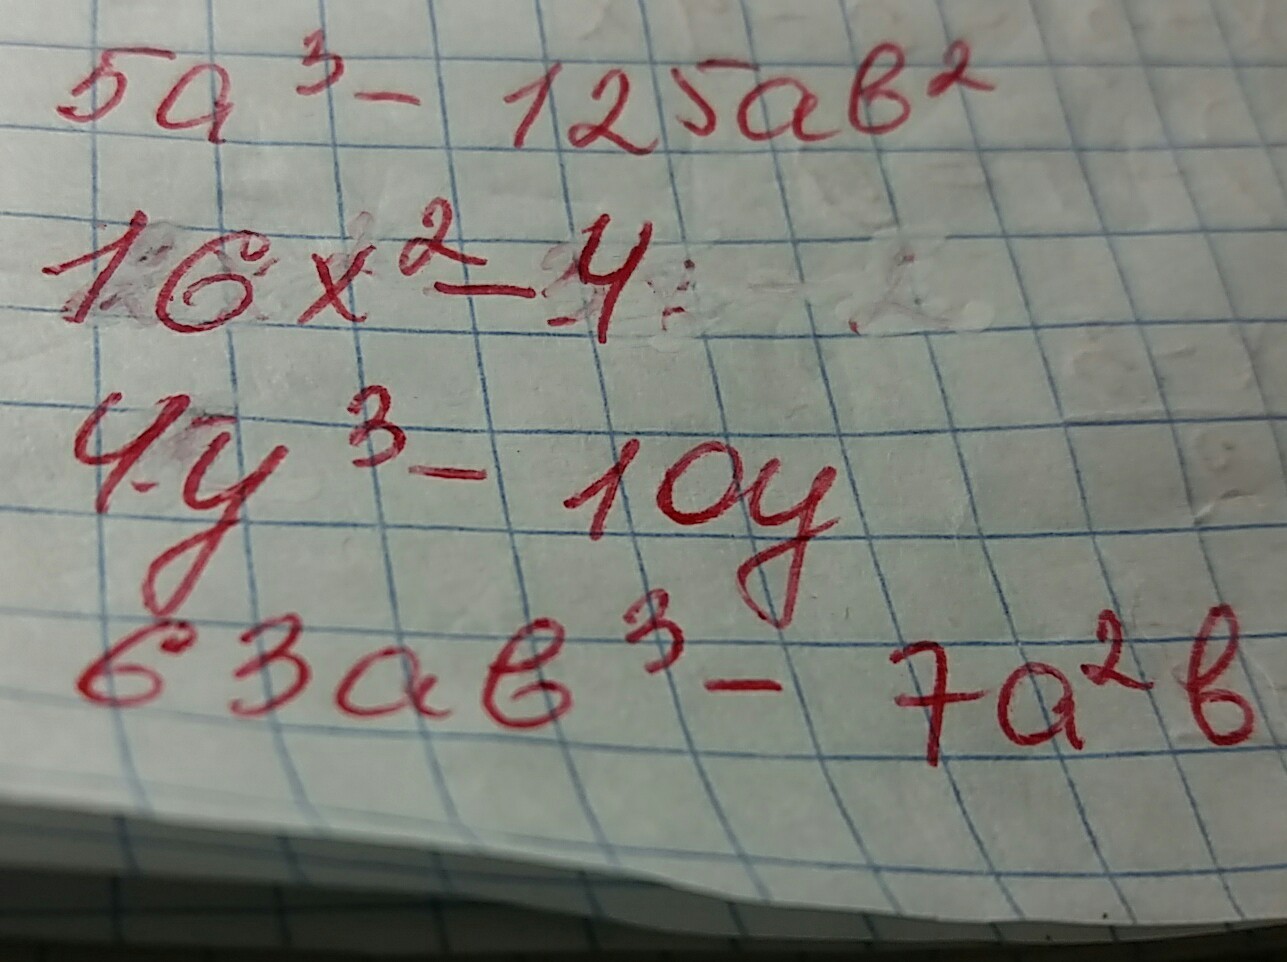 5a³ - 125ab²
16x² - 4
4y³ - 10y
63ab³ - 7a²b